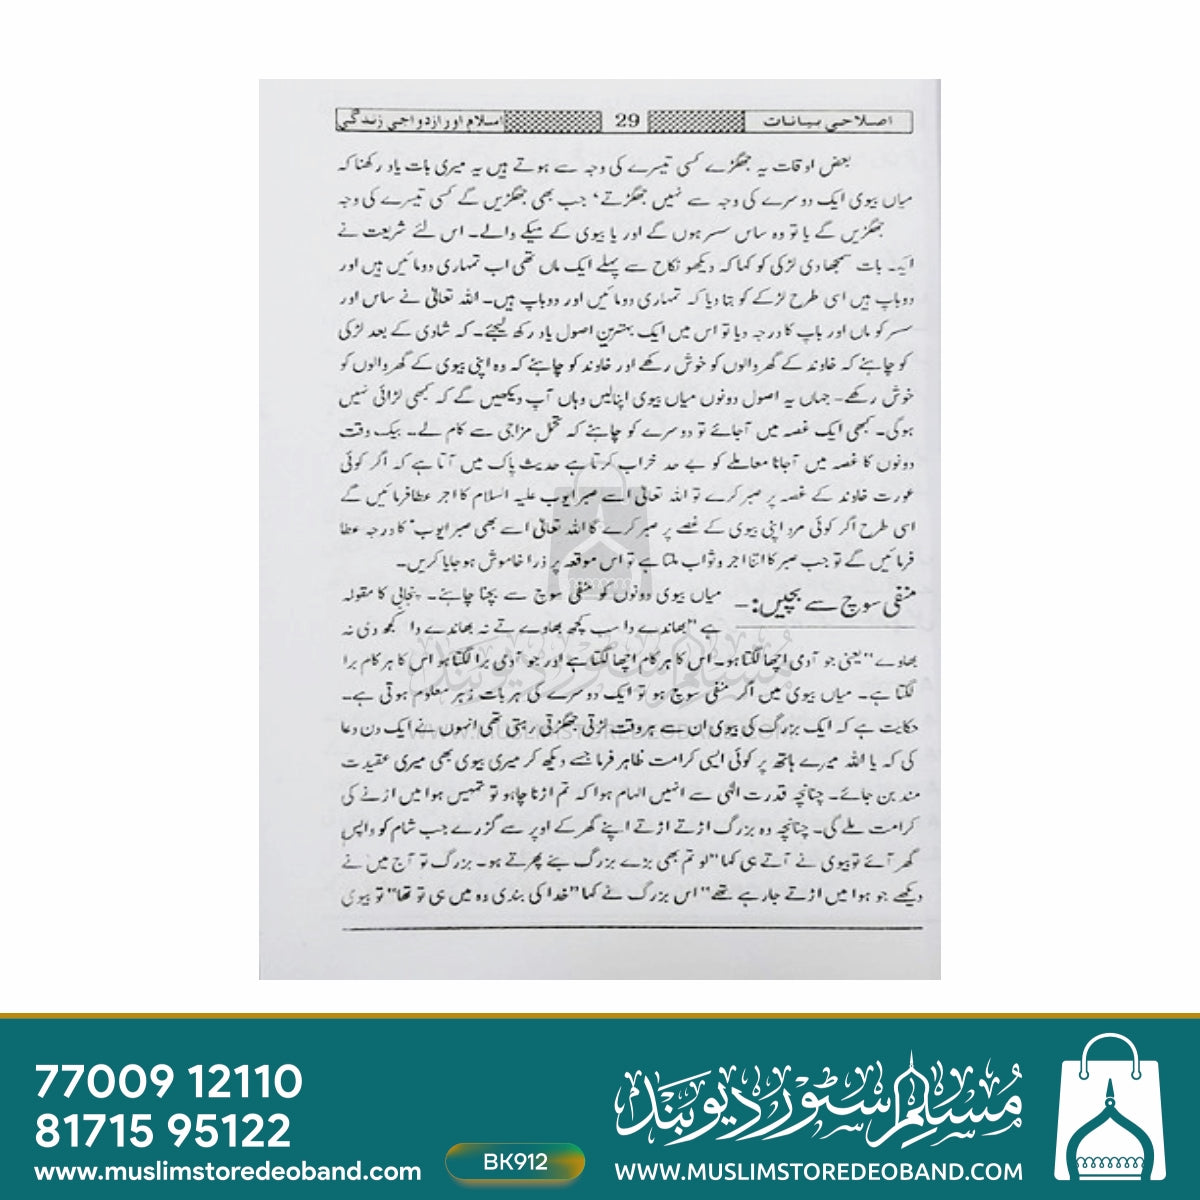 اصلاحی بیانات 29 اسلام اور ازدواجی زندگی
بعض اوقات یہ جھگڑے کسی تیسرے کی وجہ سے ہوتے ہیں یہ میری بات یاد رکھنا کہ
میاں بیوی ایک دوسرے کی وجہ سے نہیں جھگڑتے، جب بھی جھگڑیں گے کسی تیسرے کی وجہ
جھگڑیں گے یا تو وہ ساس سسر ہوں گے اور یا بیوی کے میکے والے۔ اس لئے شریعت نے
ایک بات سمجھا دی لڑکی کو کہا کہ دیکھو نکاح سے پہلے ایک ماں تھی اب تمہاری دو مائیں ہیں اور
دو باپ ہیں اسی طرح لڑکے کو بتا دیا کہ تمہاری دو مائیں اور دو باپ ہیں۔ اللہ تعالیٰ نے ساس اور
سسر کو ماں اور باپ کا درجہ دیا تو اس میں ایک بہترین اصول یاد رکھ لیجئے۔ کہ شادی کے بعد لڑکی
کو چاہئے کہ خاوند کے گھر والوں کو خوش رکھے اور خاوند کو چاہئے کہ وہ اپنی بیوی کے گھر والوں کو
خوش رکھے۔ جہاں یہ اصول دونوں میاں بیوی اپنالیں وہاں آپ دیکھیں گے کہ کبھی لڑائی نہیں
ہوگی۔ کبھی ایک غصہ میں آجائے تو دوسرے کو چاہئے کہ تحمل مزاجی سے کام لے۔ بیک وقت
دونوں کا غصہ میں آجانا معاملے کو بے حد خراب کرتا ہے حدیث پاک میں آتا ہے کہ اگر کوئی
عورت خاوند کے غصہ پر صبر کرے تو اللہ تعالیٰ اسے صبر ایوب علیہ السلام کا اجر عطا فرمائیں گے
اسی طرح اگر کوئی مرد اپنی بیوی کے غصے پر صبر کرے گا اللہ تعالیٰ اسے بھی صبر ایوبؑ کا درجہ عطا
فرمائیں گے تو جب صبر کا اتنا اجر و ثواب ملتا ہے تو اس موقعہ پر ذرا خاموش ہو جایا کریں۔
منفی سوچ سے بچیں:- میاں بیوی دونوں کو منفی سوچ سے بچنا چاہئے۔ پنجابی کا مقولہ
ہے "بھاندے دا سب کچھ بھاوے تے نہ بھاندے دا کجھ وی نہ
بھاوے" یعنی جو آدمی اچھا لگتا ہو۔ اس کا ہر کام اچھا لگتا ہے اور جو آدمی برا لگتا ہو اس کا ہر کام برا
لگتا ہے۔ میاں بیوی میں اگر منفی سوچ ہو تو ایک دوسرے کی ہر بات زہر معلوم ہوتی ہے۔
حکایت ہے کہ ایک بزرگ کی بیوی ان سے ہر وقت لڑتی جھگڑتی رہتی تھی انہوں نے ایک دن دعا
کی کہ یا اللہ میرے ہاتھ پر کوئی ایسی کرامت ظاہر فرما جسے دیکھ کر میری بیوی بھی میری عقیدت
مند بن جائے۔ چنانچہ قدرت الٰہی سے انہیں الہام ہوا کہ تم اڑنا چاہو تو تمہیں ہوا میں اڑنے کی
کرامت ملے گی۔ چنانچہ وہ بزرگ اڑتے اڑتے اپنے گھر کے اوپر سے گزرے جب شام کو واپس
گھر آئے تو بیوی نے آتے ہی کہا "لو تم بھی بڑے بزرگ بنے پھرتے ہو۔ بزرگ تو آج میں نے
دیکھے جو ہوا میں اڑتے جا رہے تھے" اس بزرگ نے کہا "خدا کی بندی وہ میں ہی تو تھا" تو بیوی
مسلم سٹور دیوبند
WWW.MUSLIMSTOREDEOBAND.COM
77009 12110
81715 95122
www.muslimstoredeoband.com
BK912
مسلم سٹور دیوبند
WWW.MUSLIMSTOREDEOBAND.COM